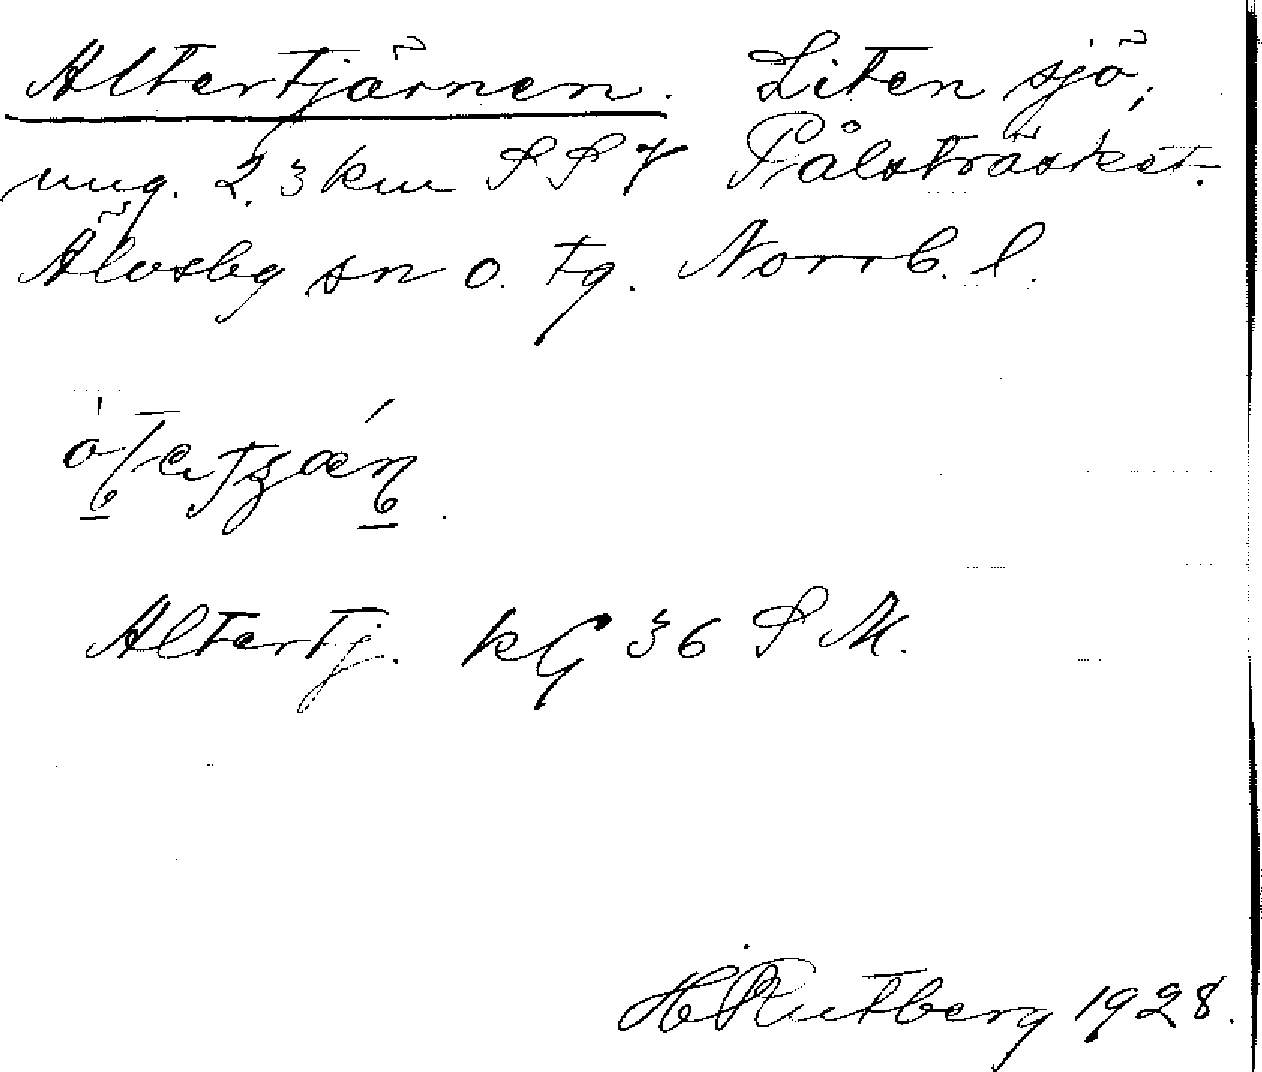 Altertjärnen. Liten sjö,
ung. 2,3 km SSV Pålsträsket.
Älvsby sn o. tg. Norrb. l.
Altertj. kG 36 SM.
H Rutberg 1928.